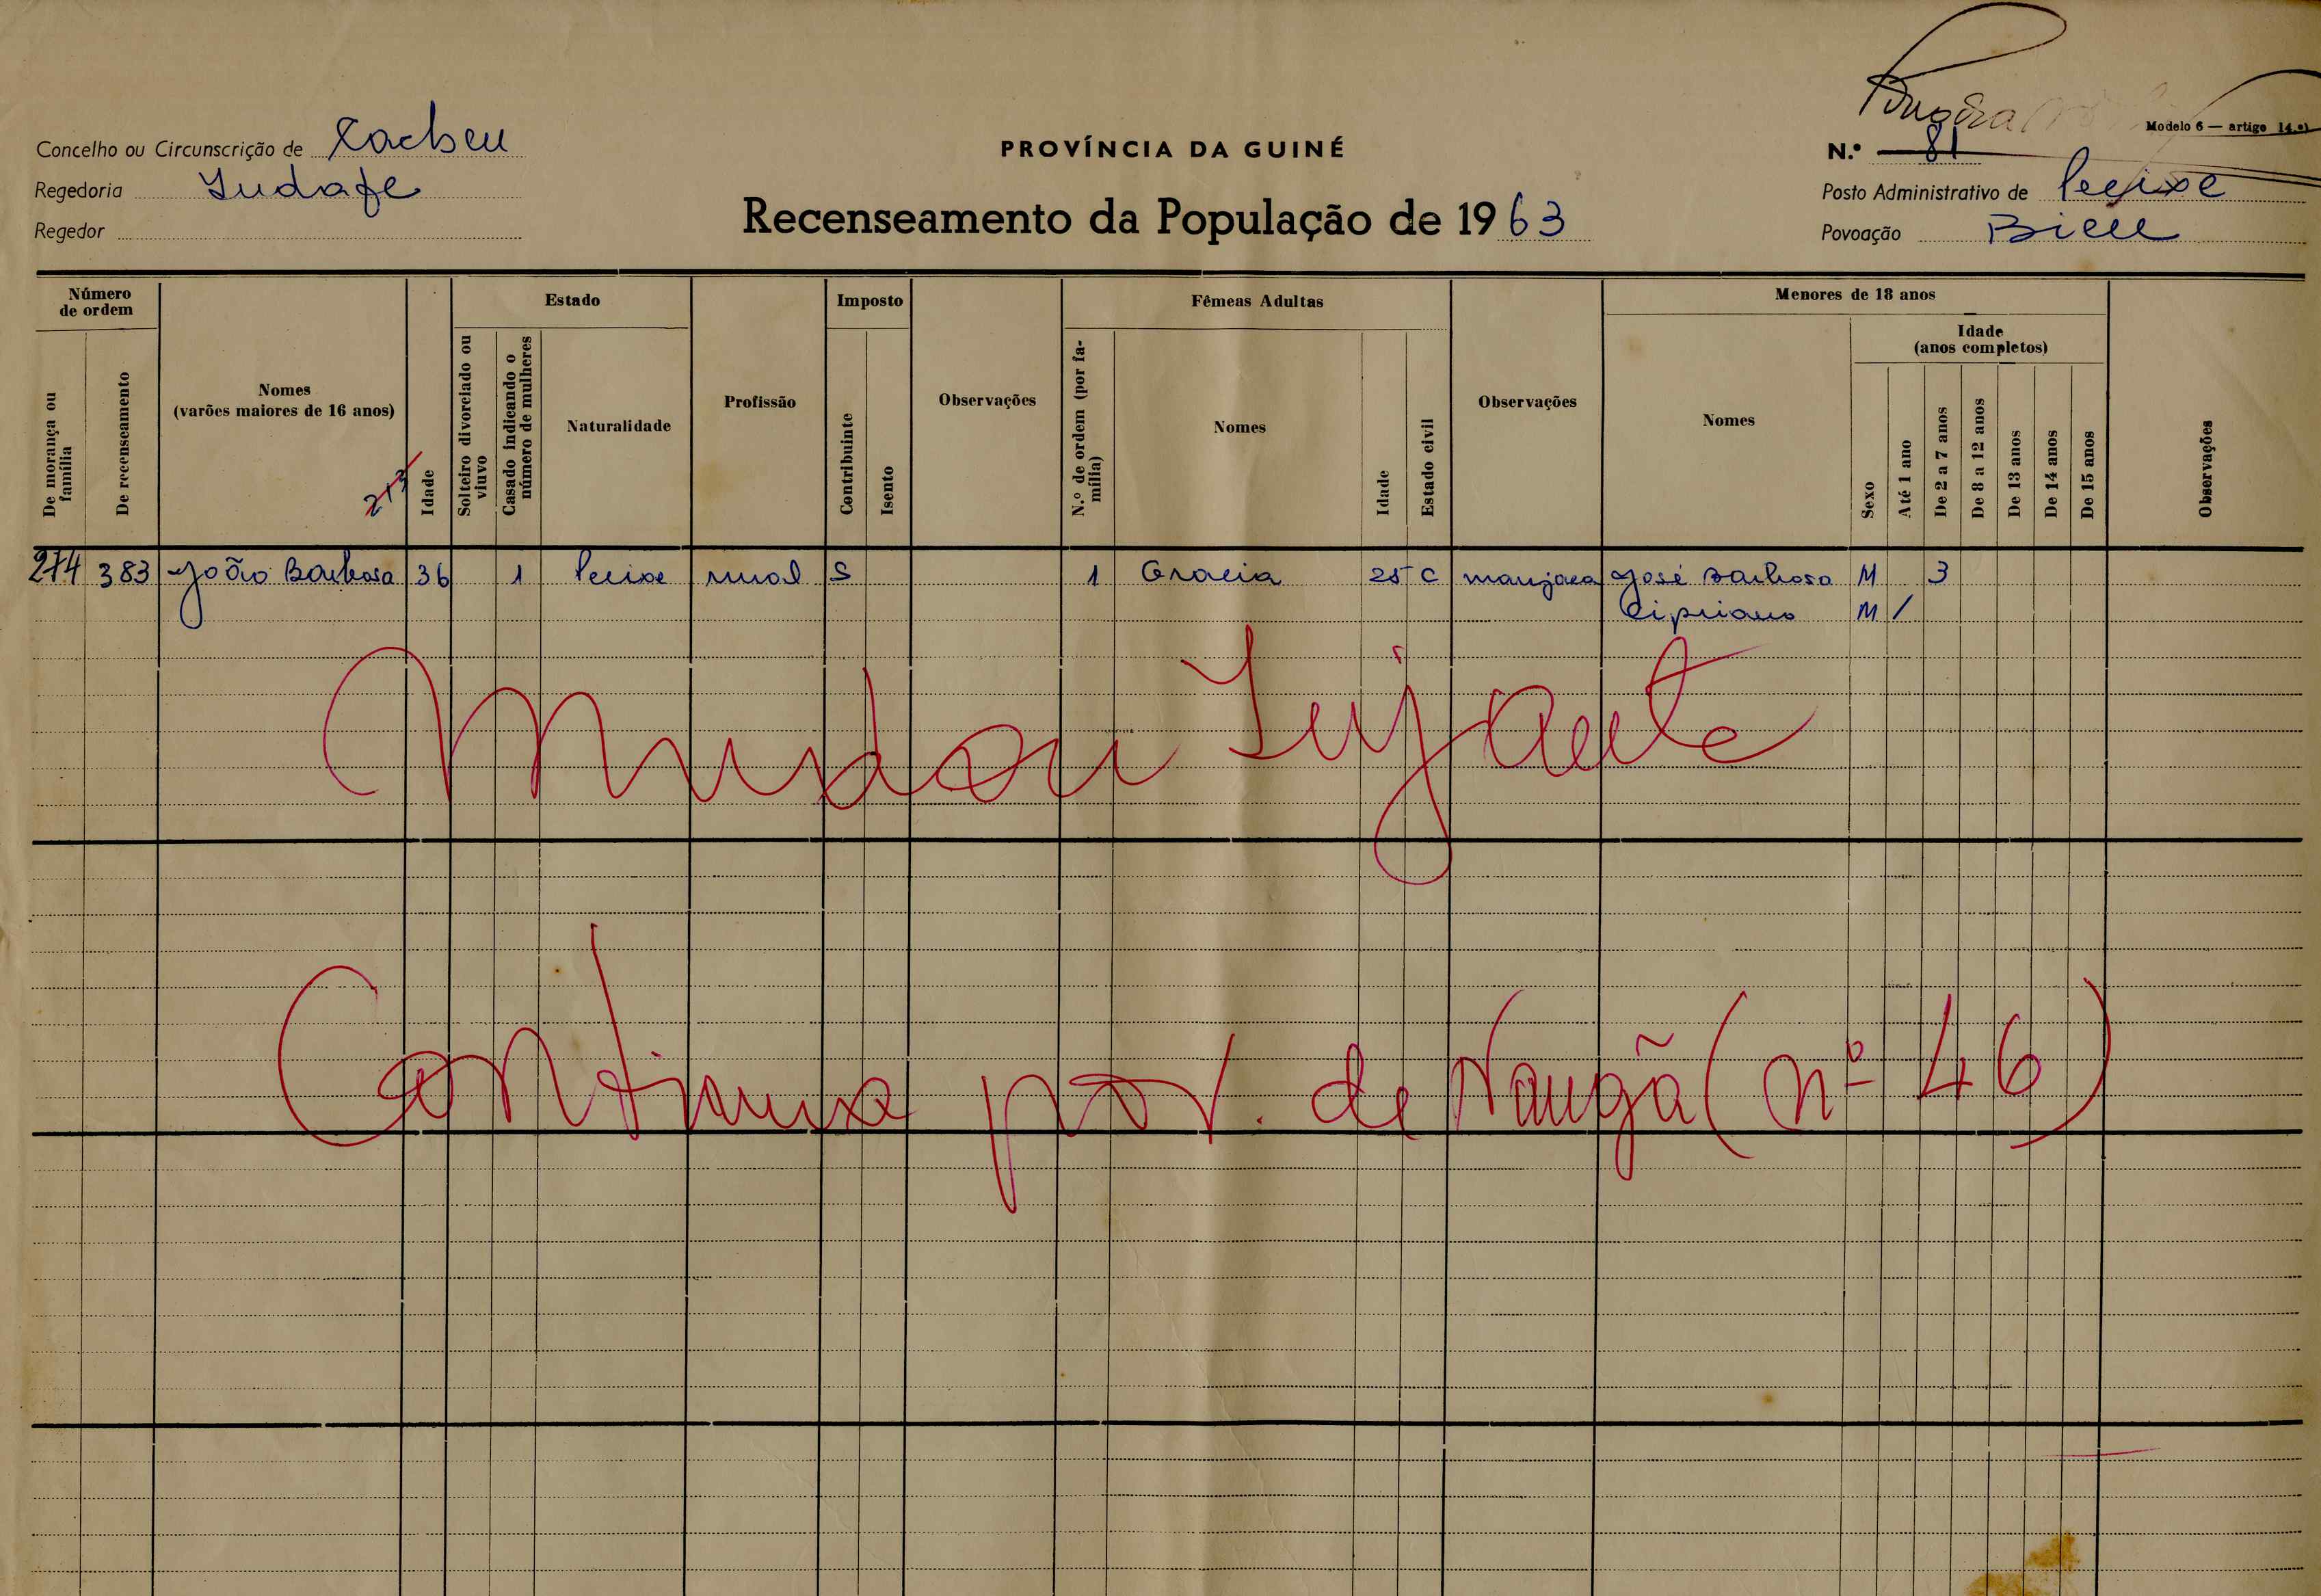 Modelo 6 — artigo 14.º)
Concelho ou Circunscrição de Cacheu
PROVÍNCIA DA GUINÉ
N.º 81
Regedoria
Posto Administrativo de Pecixe
Recenseamento da População de 1963
Regedor
Povoação
Número de ordem
De morança ou família
De recenseamento
Nomes
(varões maiores de 16 anos)
Idade
Estado
Solteiro divorciado ou viuvo
Casado indicando o número de mulheres
Naturalidade
Profissão
Imposto
Contribuinte
Isento
Observações
Fêmeas Adultas
N.º de ordem (por família)
Nomes
Idade
Estado civil
Observações
Menores de 18 anos
Nomes
Sexo
Idade
(anos completos)
Até 1 ano
De 2 a 7 anos
De 8 a 12 anos
De 13 anos
De 14 anos
De 15 anos
Observações
274 383 João Barbosa 36 1 Pecixe rural S 1 Gracia 25 C manjaca José Barbosa M 3
Cipriano M /
Mudou
pov. de Nangã (nº 46)